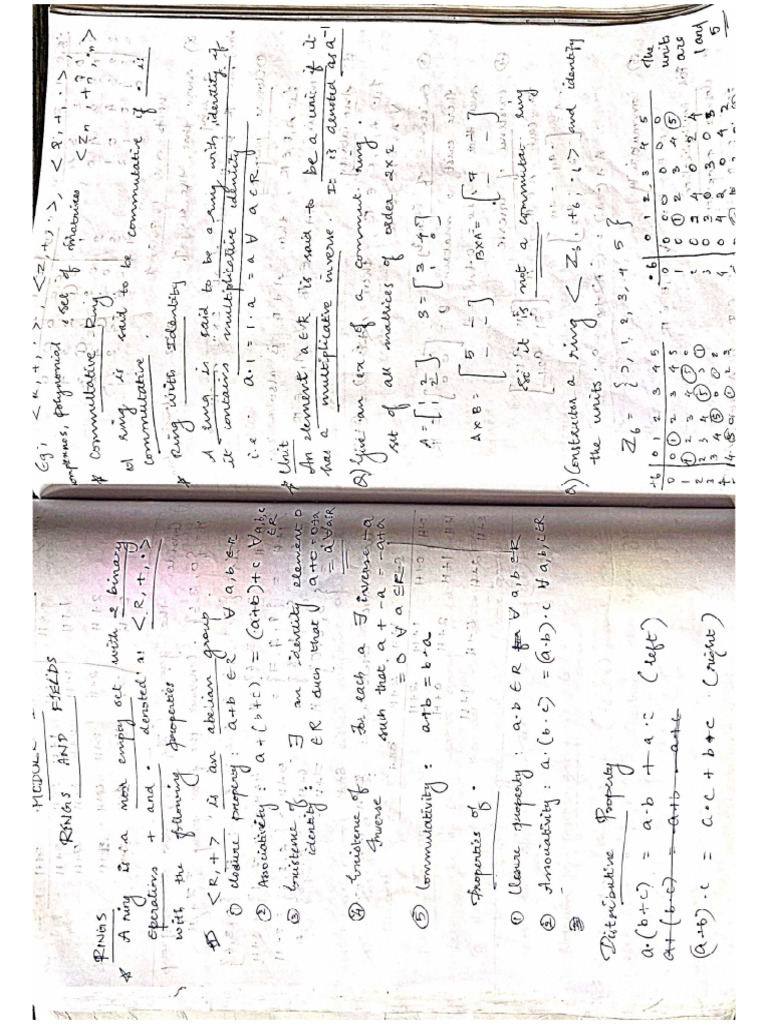 RINGS AND FIELDS
RINGS
* A ring is a non empty set with 2 binary
operations + and • denoted as <R, +, •>
with the following properties.
1) <R, +> is an abelian group.
① Closure property : a+b ∈ R ∀ a,b ∈ R
② Associativity : a+(b+c) = (a+b)+c ∀ a,b,c ∈ R
③ Existence of identity : ∃ an identity element 0
∈ R such that a+0 = 0+a
= a ∀ a∈R
④ Existence of Inverse : For each a ∃ inverse -a
such that a + -a = -a+a
= 0 ∀ a ∈ R
⑤ Commutativity : a+b = b+a
Properties of •
① Closure property : a•b ∈ R ∀ a,b ∈ R
② Associativity : a•(b•c) = (a•b)•c ∀ a,b,c ∈ R
Distributive Property
a•(b+c) = a•b + a•c (left)
a+(b•c) = a+b • a+c
(a+b)•c = a•c + b•c (right)
Eg: <R, +, •> <Z, +, •>, <Q, +, •>,
polynomial, set of matrices <Zn, +n, •n>
* Commutative Ring
A ring is said to be commutative if • is
commutative.
* Ring with Identity
A ring is said to be a ring with identity if
it contains multiplicative identity
i.e. a•1 = 1•a = a ∀ a ∈ R.
* Unit
An element a∈R is said to be a unit if it
has a multiplicative inverse. It is denoted as a⁻¹
Q) Give an ex: of a commut ring.
set of all matrices of order 2x2
A = B =
A x B = [5 - - -] B x A =
it is not a commutat ring
Q) Construct a ring <Z6, +6, •6> and identify
the units.
Z6 = {0, 1, 2, 3, 4, 5}
+6 | 0 1 2 3 4 5
•6 | 0 1 2 3 4 5
0 | 0 0 0 0 0 0
1 | 0 1 2 3 4 5
2 | 0 2 4 0 2 4
3 | 0 3 0 3 0 3
The
units
are
1 and
5